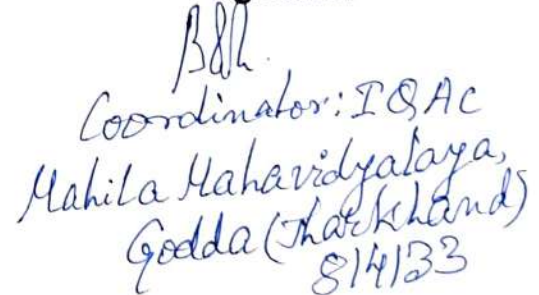 Coordinator: IQAC
Mahila Mahavidyalaya,
Godda (Jharkhand)
814133